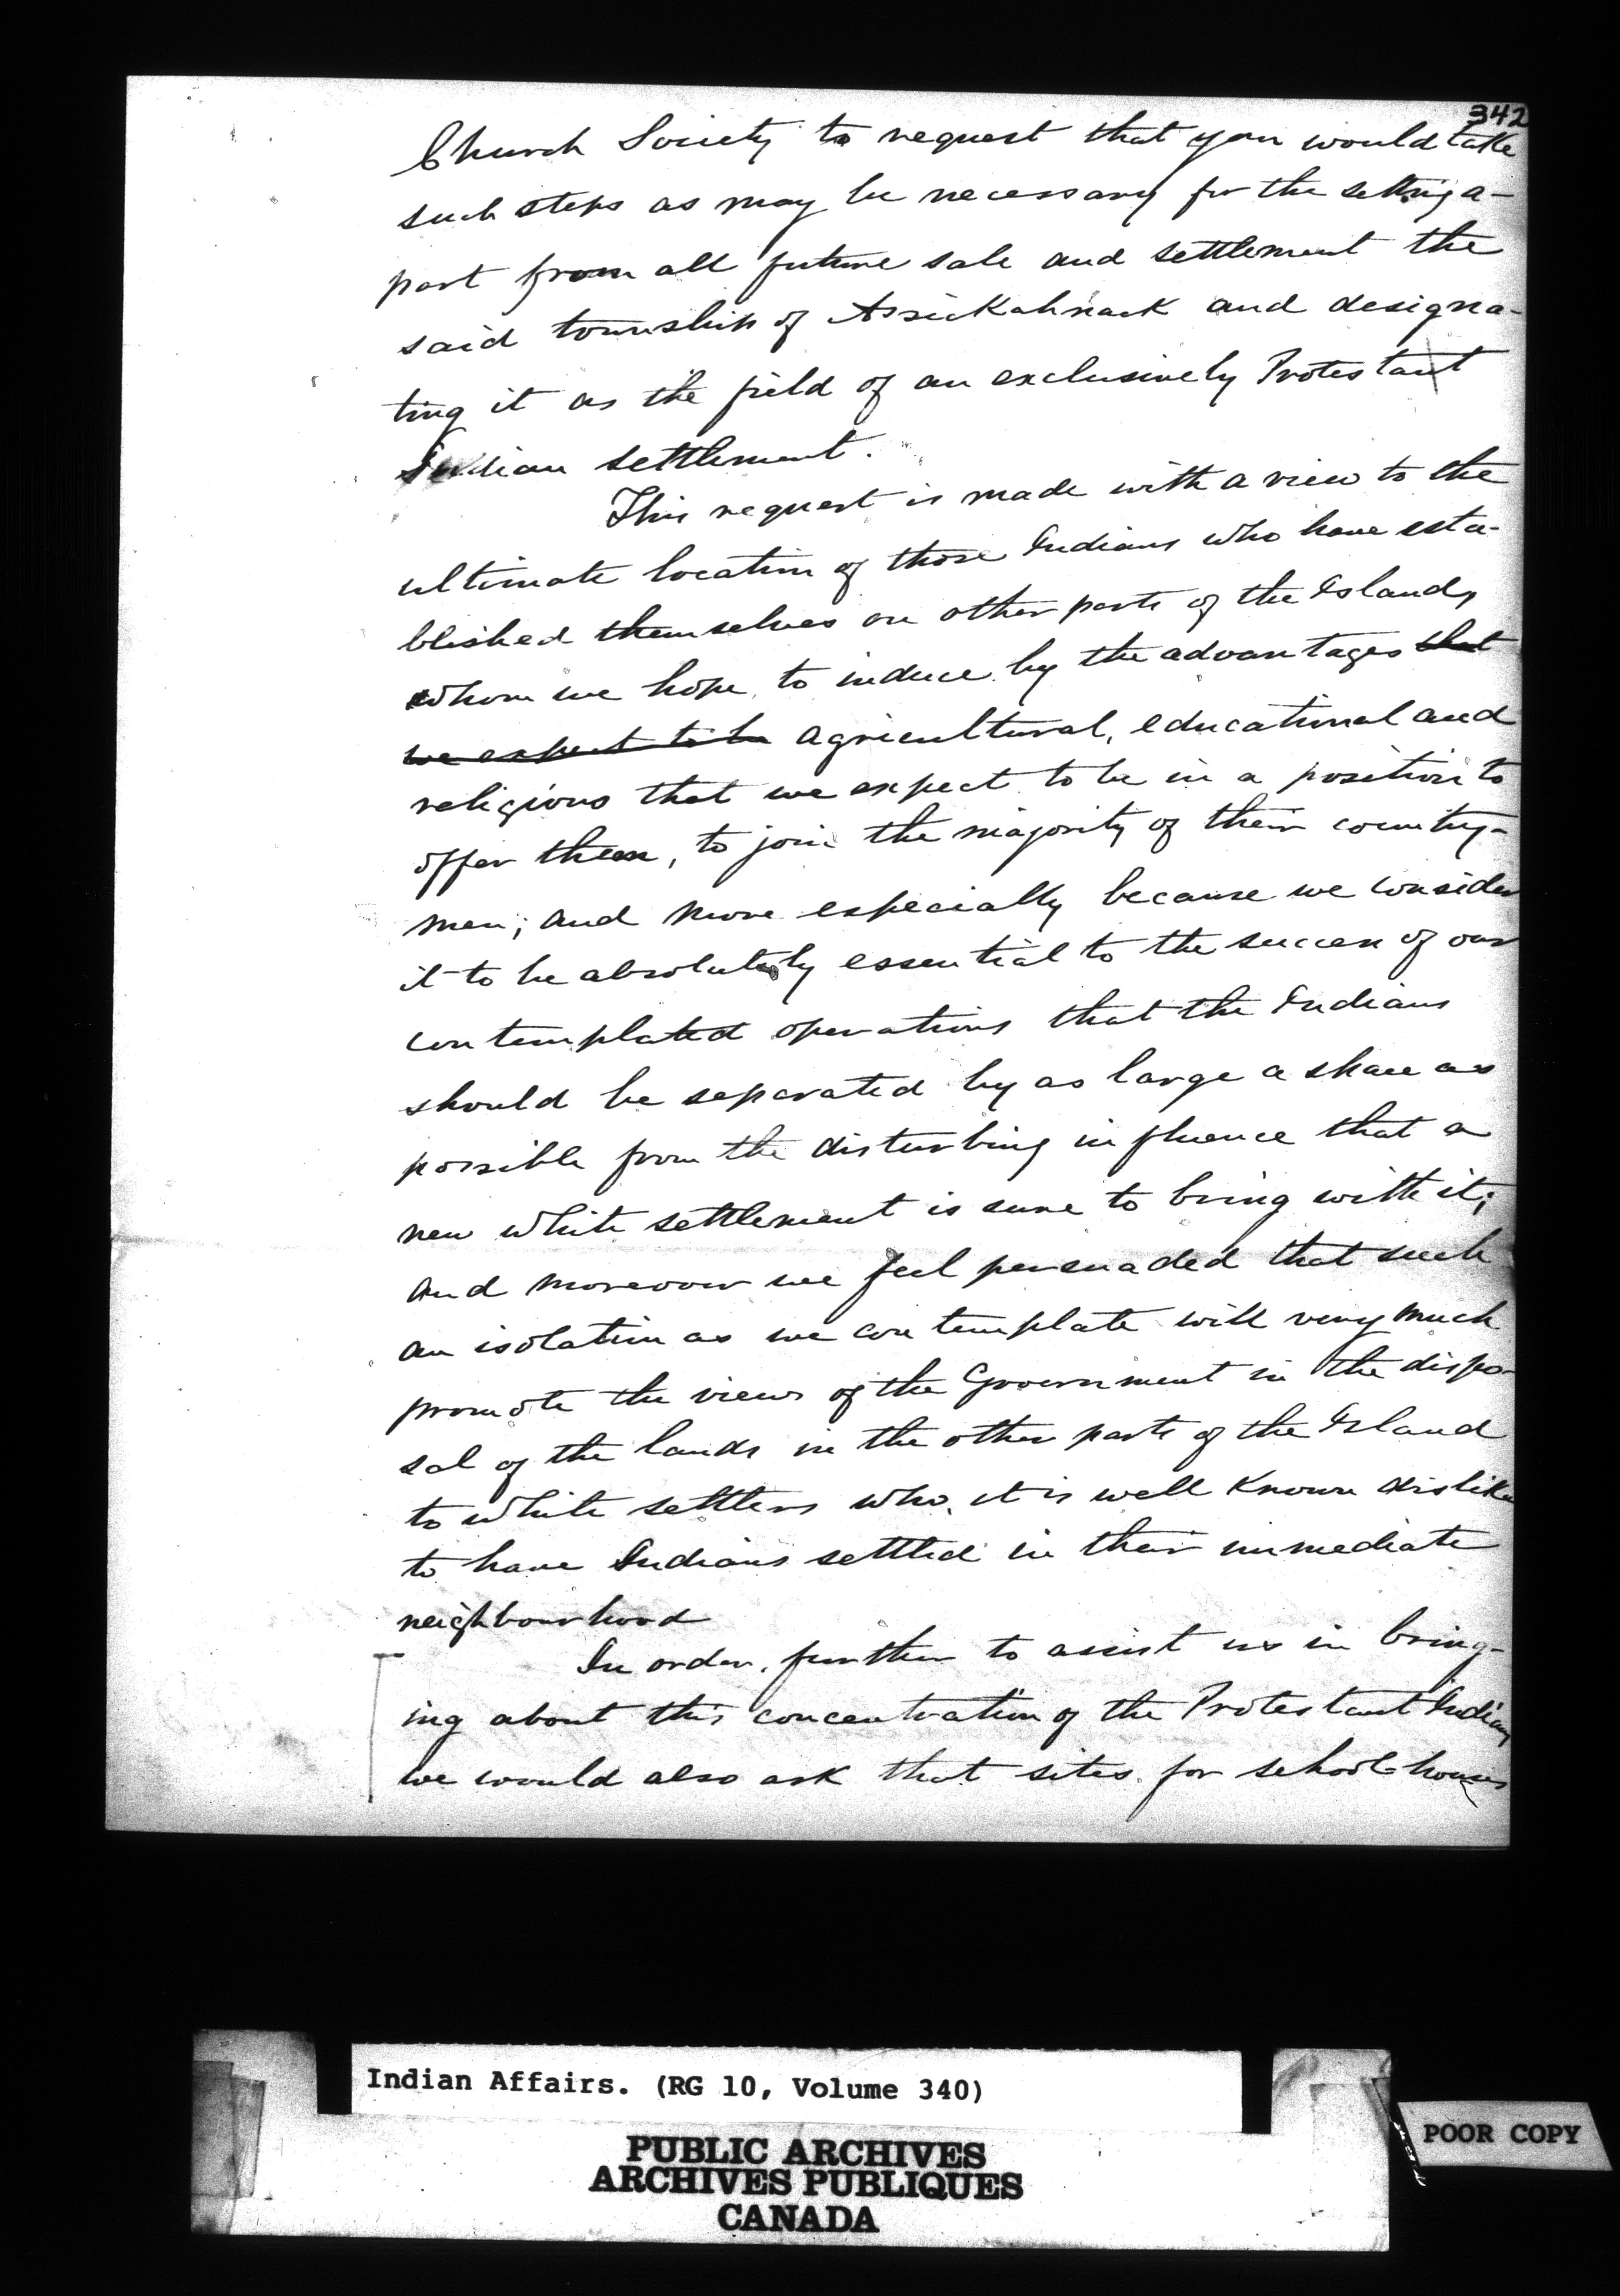 342
Church Society to request that you would take
such steps as may be necessary for the setting a-
part from all future sale and settlement the
said township of Assickahnack and designa-
ting it as the field of an exclusively Protestant
Indian settlement.
This request is made with a view to the
ultimate location of those Indians who have esta-
blished themselves on other parts of the Island,
whom we hope, to induce by the advantages that
we expect to be agricultural, educational and
religious that we expect to be in a position to
offer them, to join the majority of their country-
men; and more especially because we consider
it to be absolutely essential to the success of our
contemplated operations that the Indians
should be separated by as large a space as
possible from the disturbing influence that a
new white settlement is sure to bring with it;
and moreover we feel persuaded that such
an isolation as we contemplate will very much
promote the views of the Government in the dispo-
sal of the lands in the other parts of the Island
to white settlers who, it is well known dislike
to have Indians settled in their immediate
neighbourhood
In order, further to assist us in bring-
ing about this concentration of the Protestant Indians
we would also ask that sites for school houses
Indian Affairs. (RG 10, Volume 340)
PUBLIC ARCHIVES
ARCHIVES PUBLIQUES
CANADA
POOR COPY